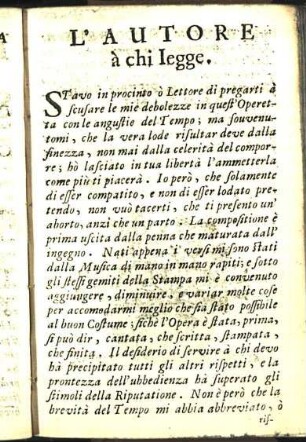 L'AUTORE
à chi legge.
STavo in procinto ò Lettore di pregarti à
scusare le mie debolezze in quest'Operet-
ta con le angustie del Tempo; ma souvenu-
tomi, che la vera lode risultar deve dalla
finezza, non mai dalla celerità del compor-
re; hò lasciato in tua libertà l'ammetterla
come più ti piacerà. Io però, che solamente
di esser compatito, e non di esser lodato pre-
tendo, non vuò tacerti, che ti presento un'
aborto, anzi che un parto. La compositione è
prima uscita dalla penna che maturata dall'
ingegno. Nati appena i versi mi sono stati
dalla Musica di mano in mano rapiti; e sotto
gli stessi gemiti della Stampa mi è convenuto
aggiungere, diminuire, e variar molte cose
per accomodarmi meglio che sia stato possibile
al buon Costume; siche l'Opera è stata, prima,
si può dir, cantata, che scritta, stampata,
che finita. Il desiderio di servire à chi devo
hà precipitato tutti gli altri rispetti, e la
prontezza dell'ubbedienza hà superato gli
stimoli della Riputatione. Non è però che la
brevità del Tempo mi abbia abbreviato, ò
ris-